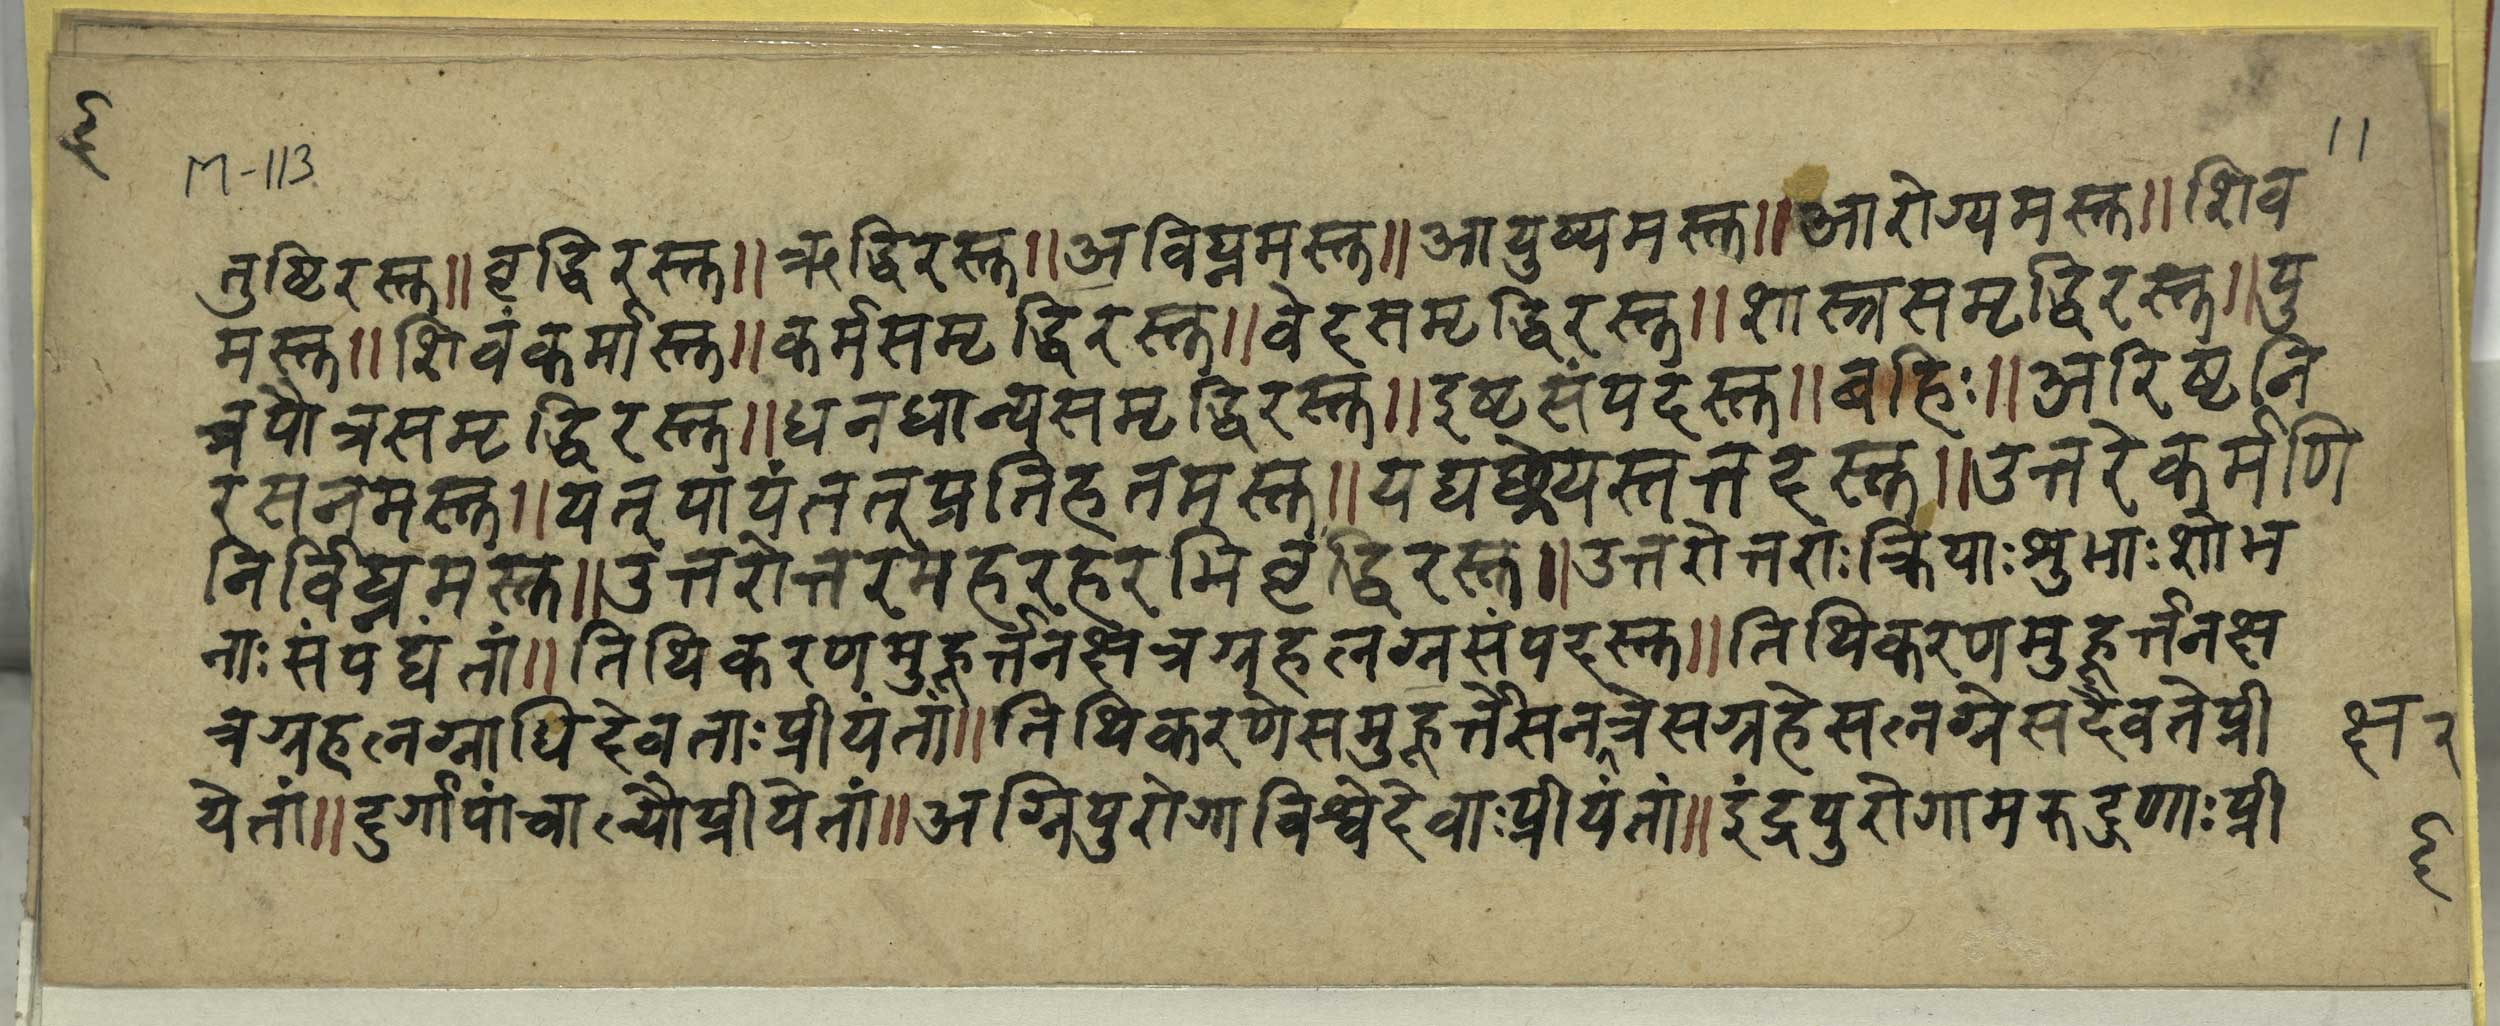 ६
M-113
11
तुष्टिरस्तु॥वृद्धिरस्तु॥ऋद्धिरस्तु॥अविघ्नमस्तु॥आयुष्यमस्तु॥आरोग्यमस्तु॥शिव
मस्तु॥शिवंकर्मास्तु॥कर्मसमृद्धिरस्तु॥वेदसमृद्धिरस्तु॥शास्त्रसमृद्धिरस्तु॥पु
त्रपौत्रसमृद्धिरस्तु॥धनधान्यसमृद्धिरस्तु॥इष्टसंपदस्तु॥बहिः॥अरिष्टनि
रसनमस्तु॥यत्पापंतत्प्रतिहतमस्तु॥यद्यछ्रेयस्तत्तदस्तु॥उत्तरेकर्मणि
निर्विघ्नमस्तु॥उत्तरोत्तरमहरहरभिवृद्धिरस्तु॥उत्तरोत्तराःक्रियाःशुभाःशोभ
नाःसंपद्यंतां॥तिथिकरणमुहूर्त्तनक्षत्रग्रहलग्नसंपदस्तु॥तिथिकरणमुहूर्त्तनक्ष
त्रग्रहलग्नाधिदेवताःप्रीयंतां॥तिथिकरणेसमुहूर्त्तेसनत्रेसग्रहेसलग्नेसदैवतेप्री
क्ष २
येतां॥दुर्गापांचाल्यौप्रीयेतां॥अग्निपुरोगाविश्वेदेवाःप्रीयंतां॥इंद्रपुरोगामरुद्गणाःप्री
६